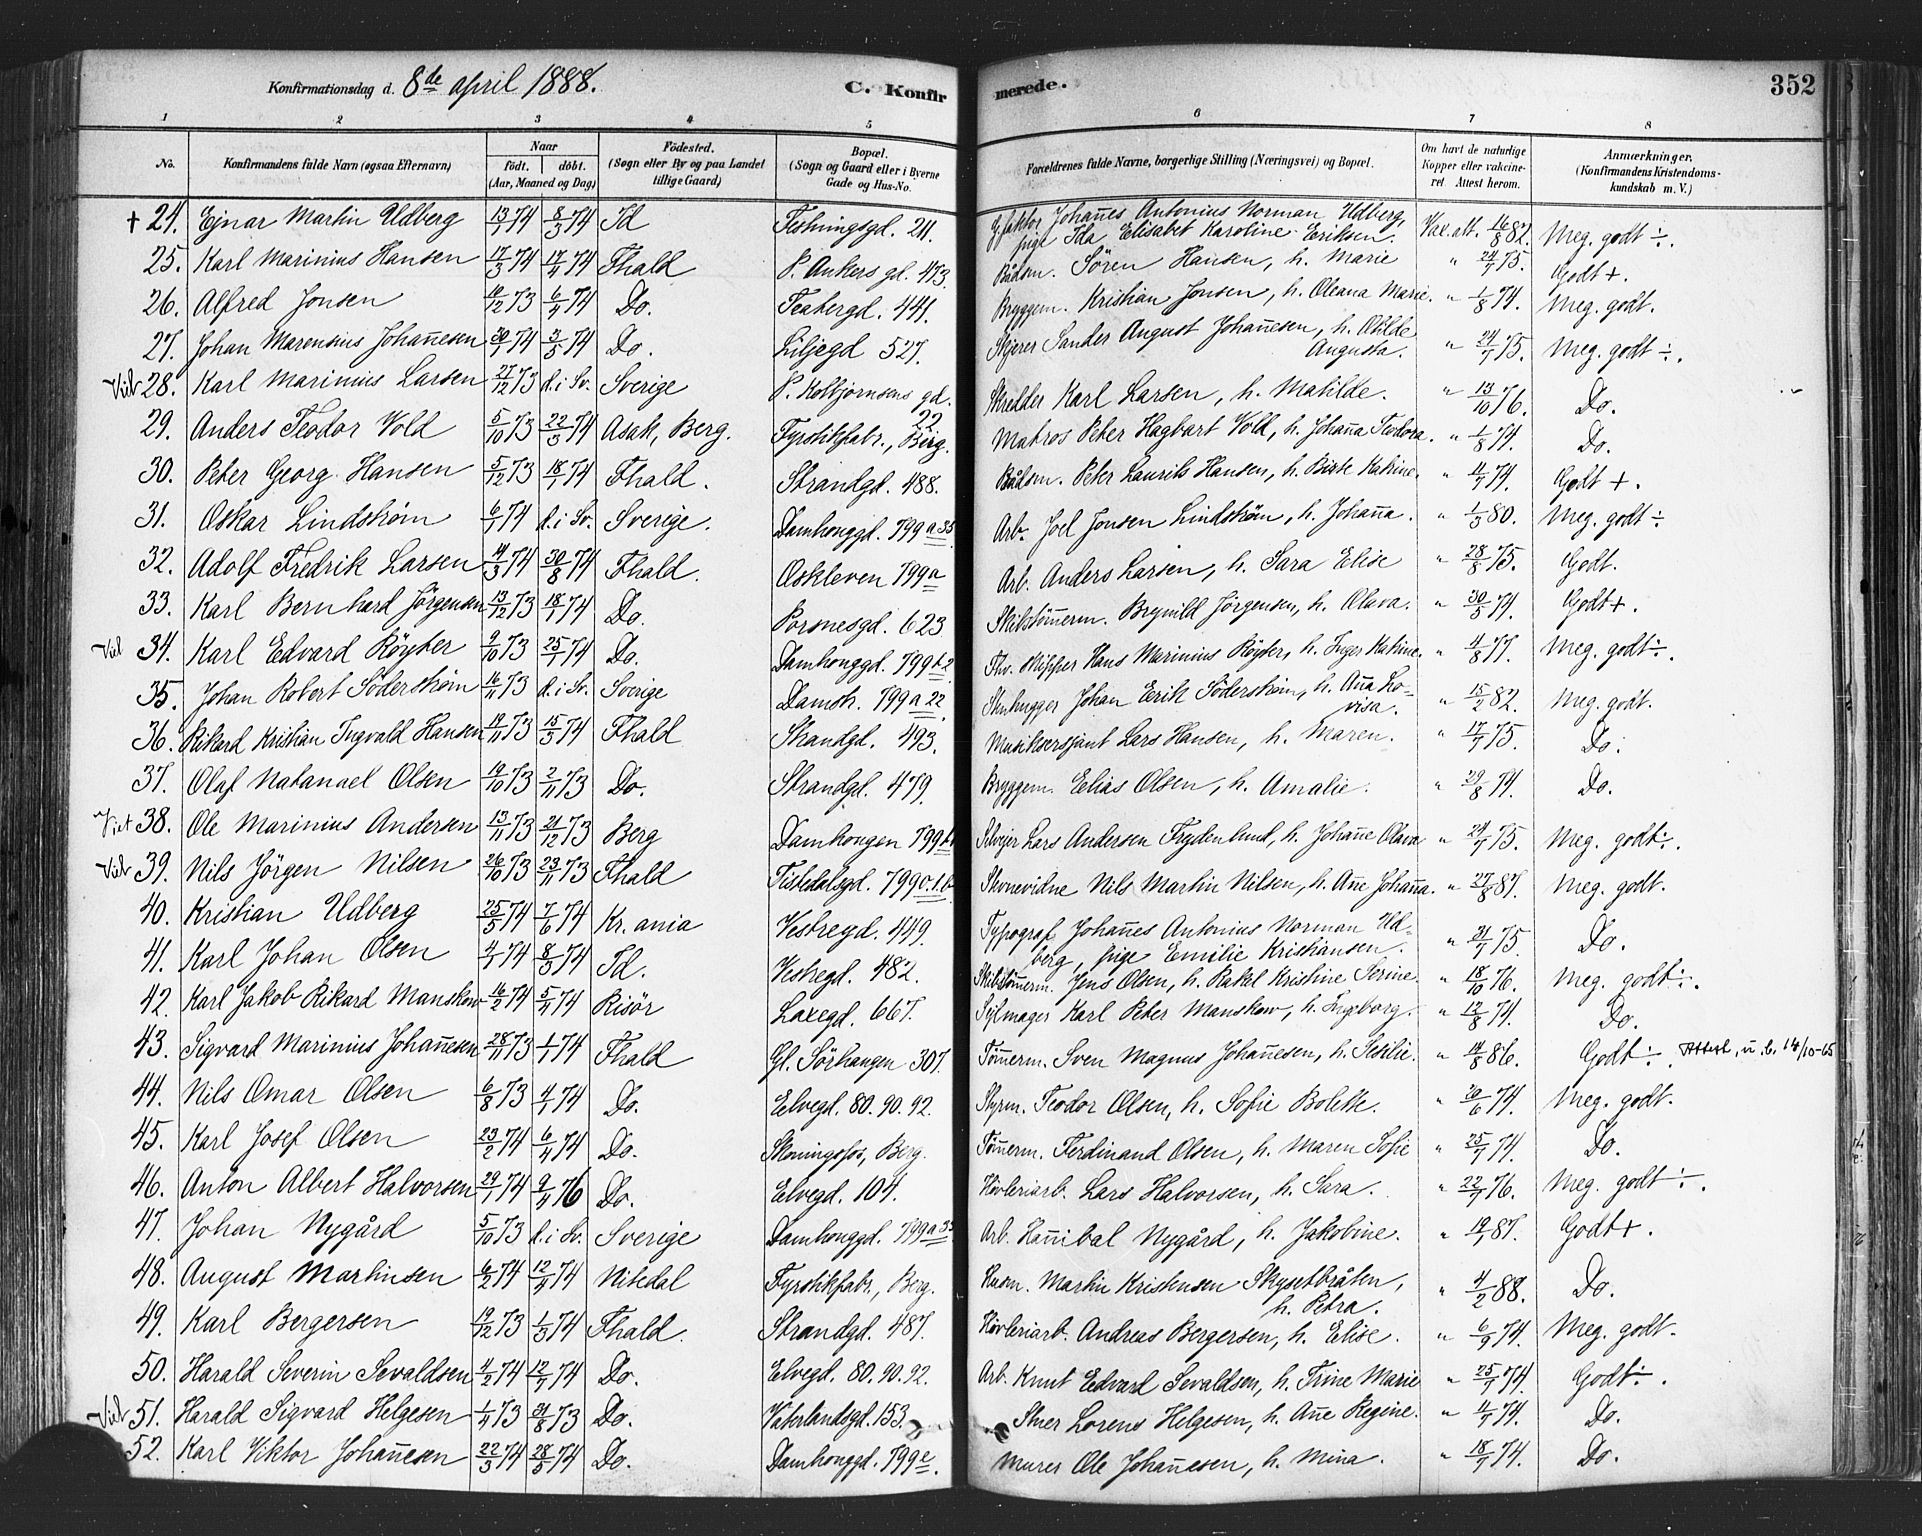 Konfirmationsdag d. 8de april 1888. C. Konfirmerede. 352
1 2 3 4 5 6 7 8
No. Konfirmandens fulde Navn (ogsaa Efternavn) Naar födt. döbt. (Aar, Maaned og Dag) Födested. (Sogn eller By og paa Landet tillige Gaard) Bopæl. (Sogn og Gaard eller i Byerne Gade og Hus-No. Forældrenes fulde Navne, borgerlige Stilling (Næringsvei) og Bopæl. Om havt de naturlige Kopper eller vakcineret. Attest herom. Anmærkninger. (Konfirmandens Kristendomskundskab m. V.)
+ 24. Ejnar Martin Udberg 13/1 74 8/3 74 Id Festningsgd. 211. Johañes Antonius Norman Udberg, pige Ida Elisabet Karoline Eriksen. Vac. att. 16/8 82. Meg. godt ÷.
25. Karl Marinius Hansen 17/3 74 17/4 74 Fhald P. Ankers gd. 473. Bådsm. Sören Hansen, h. Marie " 24/7 75. Godt +.
26. Alfred Jonsen 10/12 73 6/4 74 Do. Teatergd. 441. Bryggem. Kristian Jonsen, h. Oleana Marie. " 1/8 74. Meg. godt.
27. Johan Marensius Johañesen 30/1 74 3/5 74 Do. Liljegd 527. Skjerer Sander August Johañesen, h. Otilde Augusta. " 24/7 75. Meg. godt ÷.
28. Karl Marinius Larsen 27/12 73 d. i Sv. Sverige P. Kolbjørnsens gd. 22 Skredder Karl Larsen, h. Matilde. " 13/10 76. Do.
29. Anders Teodor Vold 5/10 73 22/3 74 Asak, Berg. Fyrstikfabr., Berg. Matros Peter Hagbart Vold, h. Johaña Teodora. " 1/8 74. Do.
30. Peter Georg Hansen 5/12 73 18/1 74 Fhald. Strandgd. 488. Bådsm. Peter Laurits Hansen, h. Birte Katrine. " 4/7 74. Godt +.
31. Oskar Lindström 6/1 74 d. i Sv. Sverige. Damhauggd. 799 a 35. Arb. Joel Jonsen Lindström, h. Johaña. " 1/3 80. Meg. godt ÷
32. Adolf Fredrik Larsen 4/3 74 30/8 74 Fhald. Oskleven 799 a Arb. Anders Larsen, h. Sara Elise " 28/8 75. Godt.
33. Karl Bernhard Jörgensen 13/12 73 18/1 74 Do. Porsnesgd. 623 Skibstömerm. Brynild Jörgensen, h. Olava. " 30/5 74. Godt +.
34. Karl Edvard Röyter 9/10 73 25/1 74 Do. Damhauggd. 799 b 2 Fhv. skipper Hans Marinius Röyter, h. Inger Katrine. " 4/8 77. Meg. godt ÷.
35. Johan Robert Söderström 16/11 73 d. i Sv. Sverige Damstr. 799 a 22. Stenhugger Johan Erik Söderström, h. Aña Lovisa. " 15/2 82. Meg. godt.
36. Rikard Kristian Ingvald Hansen 19/11 73 15/3 74 Fhald Strandgd. 493. Musiksersjant Lars Hansen, h. Maren. " 17/7 75. Do.
37. Olaf Natanael Olsen 19/10 73 2/11 73 Do. Strandgd. 479. Bryggem. Elias Olsen, h. Amalie. " 29/8 74. Do.
Viet 38. Ole Marinius Andersen 13/11 73 21/12 73 Berg Damhaugen 799 Selveier Lars Andersen Frydenlund, h. Johañe Olava " 24/7 75. Meg. godt ÷.
39. Nils Jörgen Nilsen 26/10 73 23/11 73 Fhald Tistedalsgd. 799 c. 1. b Nils Martin Nilsen, h. Añe Johaña. " 27/8 87. Meg. godt.
40. Kristian Udberg 25/5 74 7/6 74 Kr.ania Vestregd. 449. Typograf Johañes Antonius Norman Udberg, pige Emilie Kristiansen. " 31/7 75 Do.
41. Karl Johan Olsen 4/1 74 8/3 74 Id. Vestregd. 482. Skibstömerm. Jens Olsen, h. Rakel Kristine Serine. " 18/10 76. Meg. godt ÷.
42. Karl Jakob Rikard Manskow 16/2 74 5/4 74 Risör Laxegd. 667. Sejlmager Karl Peter Manskow, h. Ingeborg. " 12/8 74. Do.
43. Sigvard Marinius Johañesen 28/11 73 1/1 74 Fhald Gl. Sörhaugen 307. Tömerm. Sven Magnus Johañesen, h. Sesilie. " 14/8 86. Godt ÷. Attest, u. b. 14/10-65
44. Nils Omar Olsen 6/8 73 4/1 74 Do. Elvegd. 80. 90. 92. Styrm. Teodor Olsen, h. Sofie Bolette. " 20/6 74. Meg. godt.
45. Karl Josef Olsen 23/2 74 6/4 74 Do. Skoningsfos, Berg. Tömerm. Ferdinand Olsen, h. Maren Sofie " 25/7 74. Do.
46. Anton Albert Halvorsen 29/1 74 9/4 76 Do. Elvegd. 104. Hövleriarb. Lars Halvorsen, h. Sara. " 22/7 76. Meg. godt ÷.
47. Johan Nygård 5/10 73 d. i Sv. Sverige Damhauggd. 799 a 35 Arb. Hañibal Nygård, h. Jakobine. " 19/1 87. Godt +.
48. August Martinsen 6/2 74 12/4 74 Nitedal Fyrstikfabr., Berg. Husm. Martin Kristensen Skysetbråten, h. Petra. " 4/2 88. Do.
49. Karl Bergersen 19/12 73 1/3 74 Fhald. Strandgd. 487. Hövleriarb. Andreas Bergersen, h. Elise. " 6/9 74. Meg. godt.
50. Harald Severin Sevaldsen 4/2 74 12/7 74 Do. Elvegd. 80. 90. 92. Arb. Knut Edvard Sevaldsen, h. Trine Marie " 25/7 74. Godt ÷.
51. Harald Sigvard Helgesen 1/4 73 31/8 73 Do. Vaterlandsgd. 153. Lorens Helgesen, h. Añe Regine. " 4/7 74. Do.
52. Karl Viktor Johañesen 22/3 74 28/5 74 Do. Damhauggd. 799 e. Murer Ole Johañesen, h. Mina. " 18/7 74. Do.